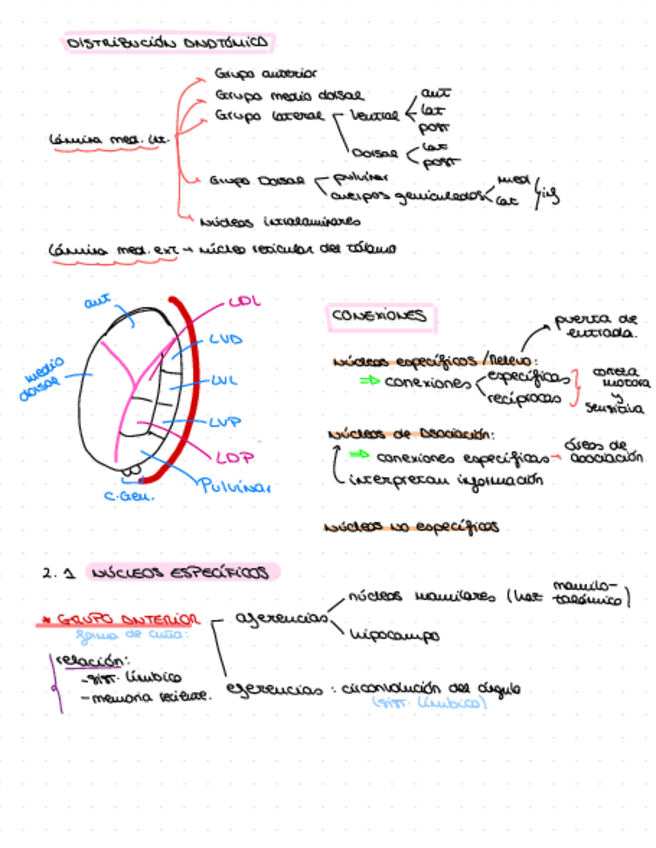 DISTRIBUCIÓN ANATÓMICA
Grupo anterior
Grupo medio dorsal
Grupo lateral
Ventral
ant
lat
post
Dorsal
lat
post
Lámina med. int.
Grupo Dorsal
pulvinar
cuerpos geniculados
med
lat
Núcleos intralaminares
Lámina med. ext → núcleo reticular del tálamo
ant
LDL
LVD
medio
dorsal
LVL
LVP
LDP
Pulvinar
C. Gen.
CONEXIONES
puerta de
entrada.
Núcleos específicos / Relevo:
⇒ conexiones
específicas
recíprocas
corteza
motora
y
sensitiva
Núcleos de Asociación:
⇒ conexiones específicas → áreas de
asociación
interpretan información
Núcleos no específicos
2. 1 NÚCLEOS ESPECÍFICOS
* GRUPO ANTERIOR
forma de cuña:
aferencias
núcleos mamilares (haz mamilo-
talámico)
hipocampo
relación:
- sist. límbico
- memoria reciente.
eferencias : circonvolución del cíngulo
(sist. límbico)